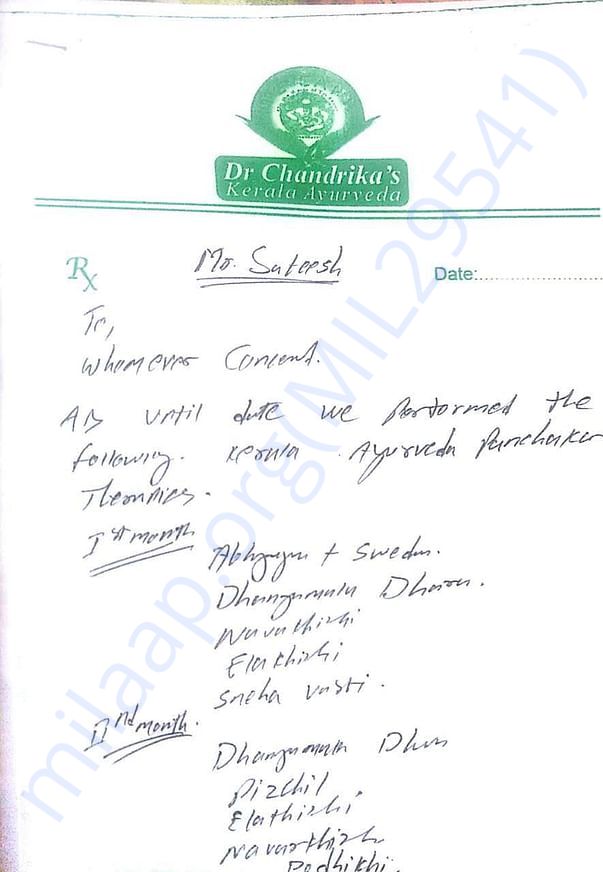 Dr Chandrika's
Kerala Ayurveda
Rx Mr. Sateesh Date:
To,
Whomever Concent.
As until date we performed the
following. Kerala Ayurveda Panchakar
Therapies.
Ist month
Abhyangam + Swedam.
Dhanyamala Dhara.
Navathizhi
Elakhizhi
Sneha vasti.
IInd month.
Dhanyamala Dhara
Pizchil
Elathizhi
Navarathizhi
Podhikhi.
milaap.org(MIL29541)